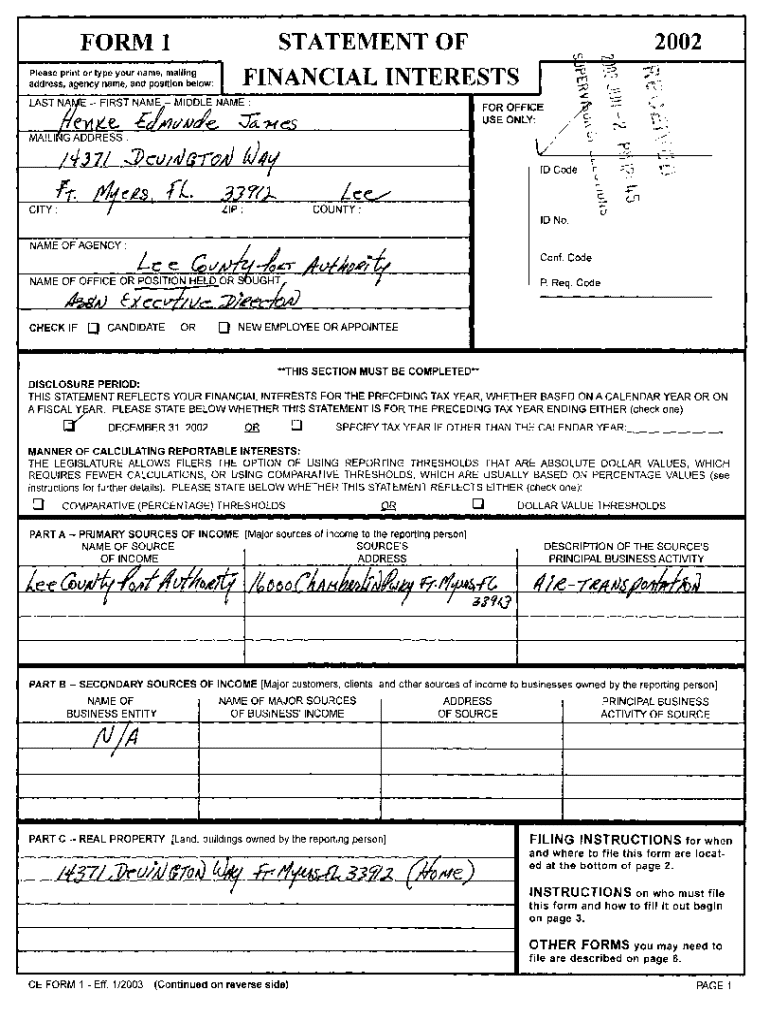 FORM 1
STATEMENT OF
FINANCIAL INTERESTS
2002
Please print or type your name, mailing
address, agency name, and position below:
LAST NAME -- FIRST NAME -- MIDDLE NAME :
Henke Edmunde James
MAILING ADDRESS :
14371 Devington Way
Ft. Myers, FL. 33912 Lee
CITY : ZIP : COUNTY :
NAME OF AGENCY :
Lee County Port Authority
NAME OF OFFICE OR POSITION HELD OR SOUGHT
Executive Director
CHECK IF CANDIDATE OR NEW EMPLOYEE OR APPOINTEE
FOR OFFICE
USE ONLY:
RECEIVED
ID Code
ID No.
Conf. Code
P. Req. Code
**THIS SECTION MUST BE COMPLETED**
DISCLOSURE PERIOD:
THIS STATEMENT REFLECTS YOUR FINANCIAL INTERESTS FOR THE PRECEDING TAX YEAR, WHETHER BASED ON A CALENDAR YEAR OR ON
A FISCAL YEAR. PLEASE STATE BELOW WHETHER THIS STATEMENT IS FOR THE PRECEDING TAX YEAR ENDING EITHER (check one)
DECEMBER 31 2002 OR SPECIFY TAX YEAR IF OTHER THAN THE CALENDAR YEAR:
MANNER OF CALCULATING REPORTABLE INTERESTS:
THE LEGISLATURE ALLOWS FILERS THE OPTION OF USING REPORTING THRESHOLDS THAT ARE ABSOLUTE DOLLAR VALUES, WHICH
REQUIRES FEWER CALCULATIONS, OR USING COMPARATIVE THRESHOLDS, WHICH ARE USUALLY BASED ON PERCENTAGE VALUES (see
instructions for further details). PLEASE STATE BELOW WHETHER THIS STATEMENT REFLECTS EITHER (check one):
COMPARATIVE (PERCENTAGE) THRESHOLDS OR DOLLAR VALUE THRESHOLDS
PART A -- PRIMARY SOURCES OF INCOME [Major sources of income to the reporting person]
NAME OF SOURCE SOURCE'S DESCRIPTION OF THE SOURCE'S
OF INCOME ADDRESS PRINCIPAL BUSINESS ACTIVITY
Lee County Port Authority 16000 Chamberlin Pkwy Ft. Myers FL Air-Transportation
33913
PART B -- SECONDARY SOURCES OF INCOME [Major customers, clients and other sources of income to businesses owned by the reporting person]
NAME OF NAME OF MAJOR SOURCES ADDRESS PRINCIPAL BUSINESS
BUSINESS ENTITY OF BUSINESS' INCOME OF SOURCE ACTIVITY OF SOURCE
N/A
PART C -- REAL PROPERTY [Land, buildings owned by the reporting person]
14371 Devington Way Ft Myers FL 33912 (Home)
FILING INSTRUCTIONS for when
and where to file this form are locat-
ed at the bottom of page 2.
INSTRUCTIONS on who must file
this form and how to fill it out begin
on page 3.
OTHER FORMS you may need to
file are described on page 6.
CE FORM 1 - Eff. 1/2003 (Continued on reverse side)
PAGE 1